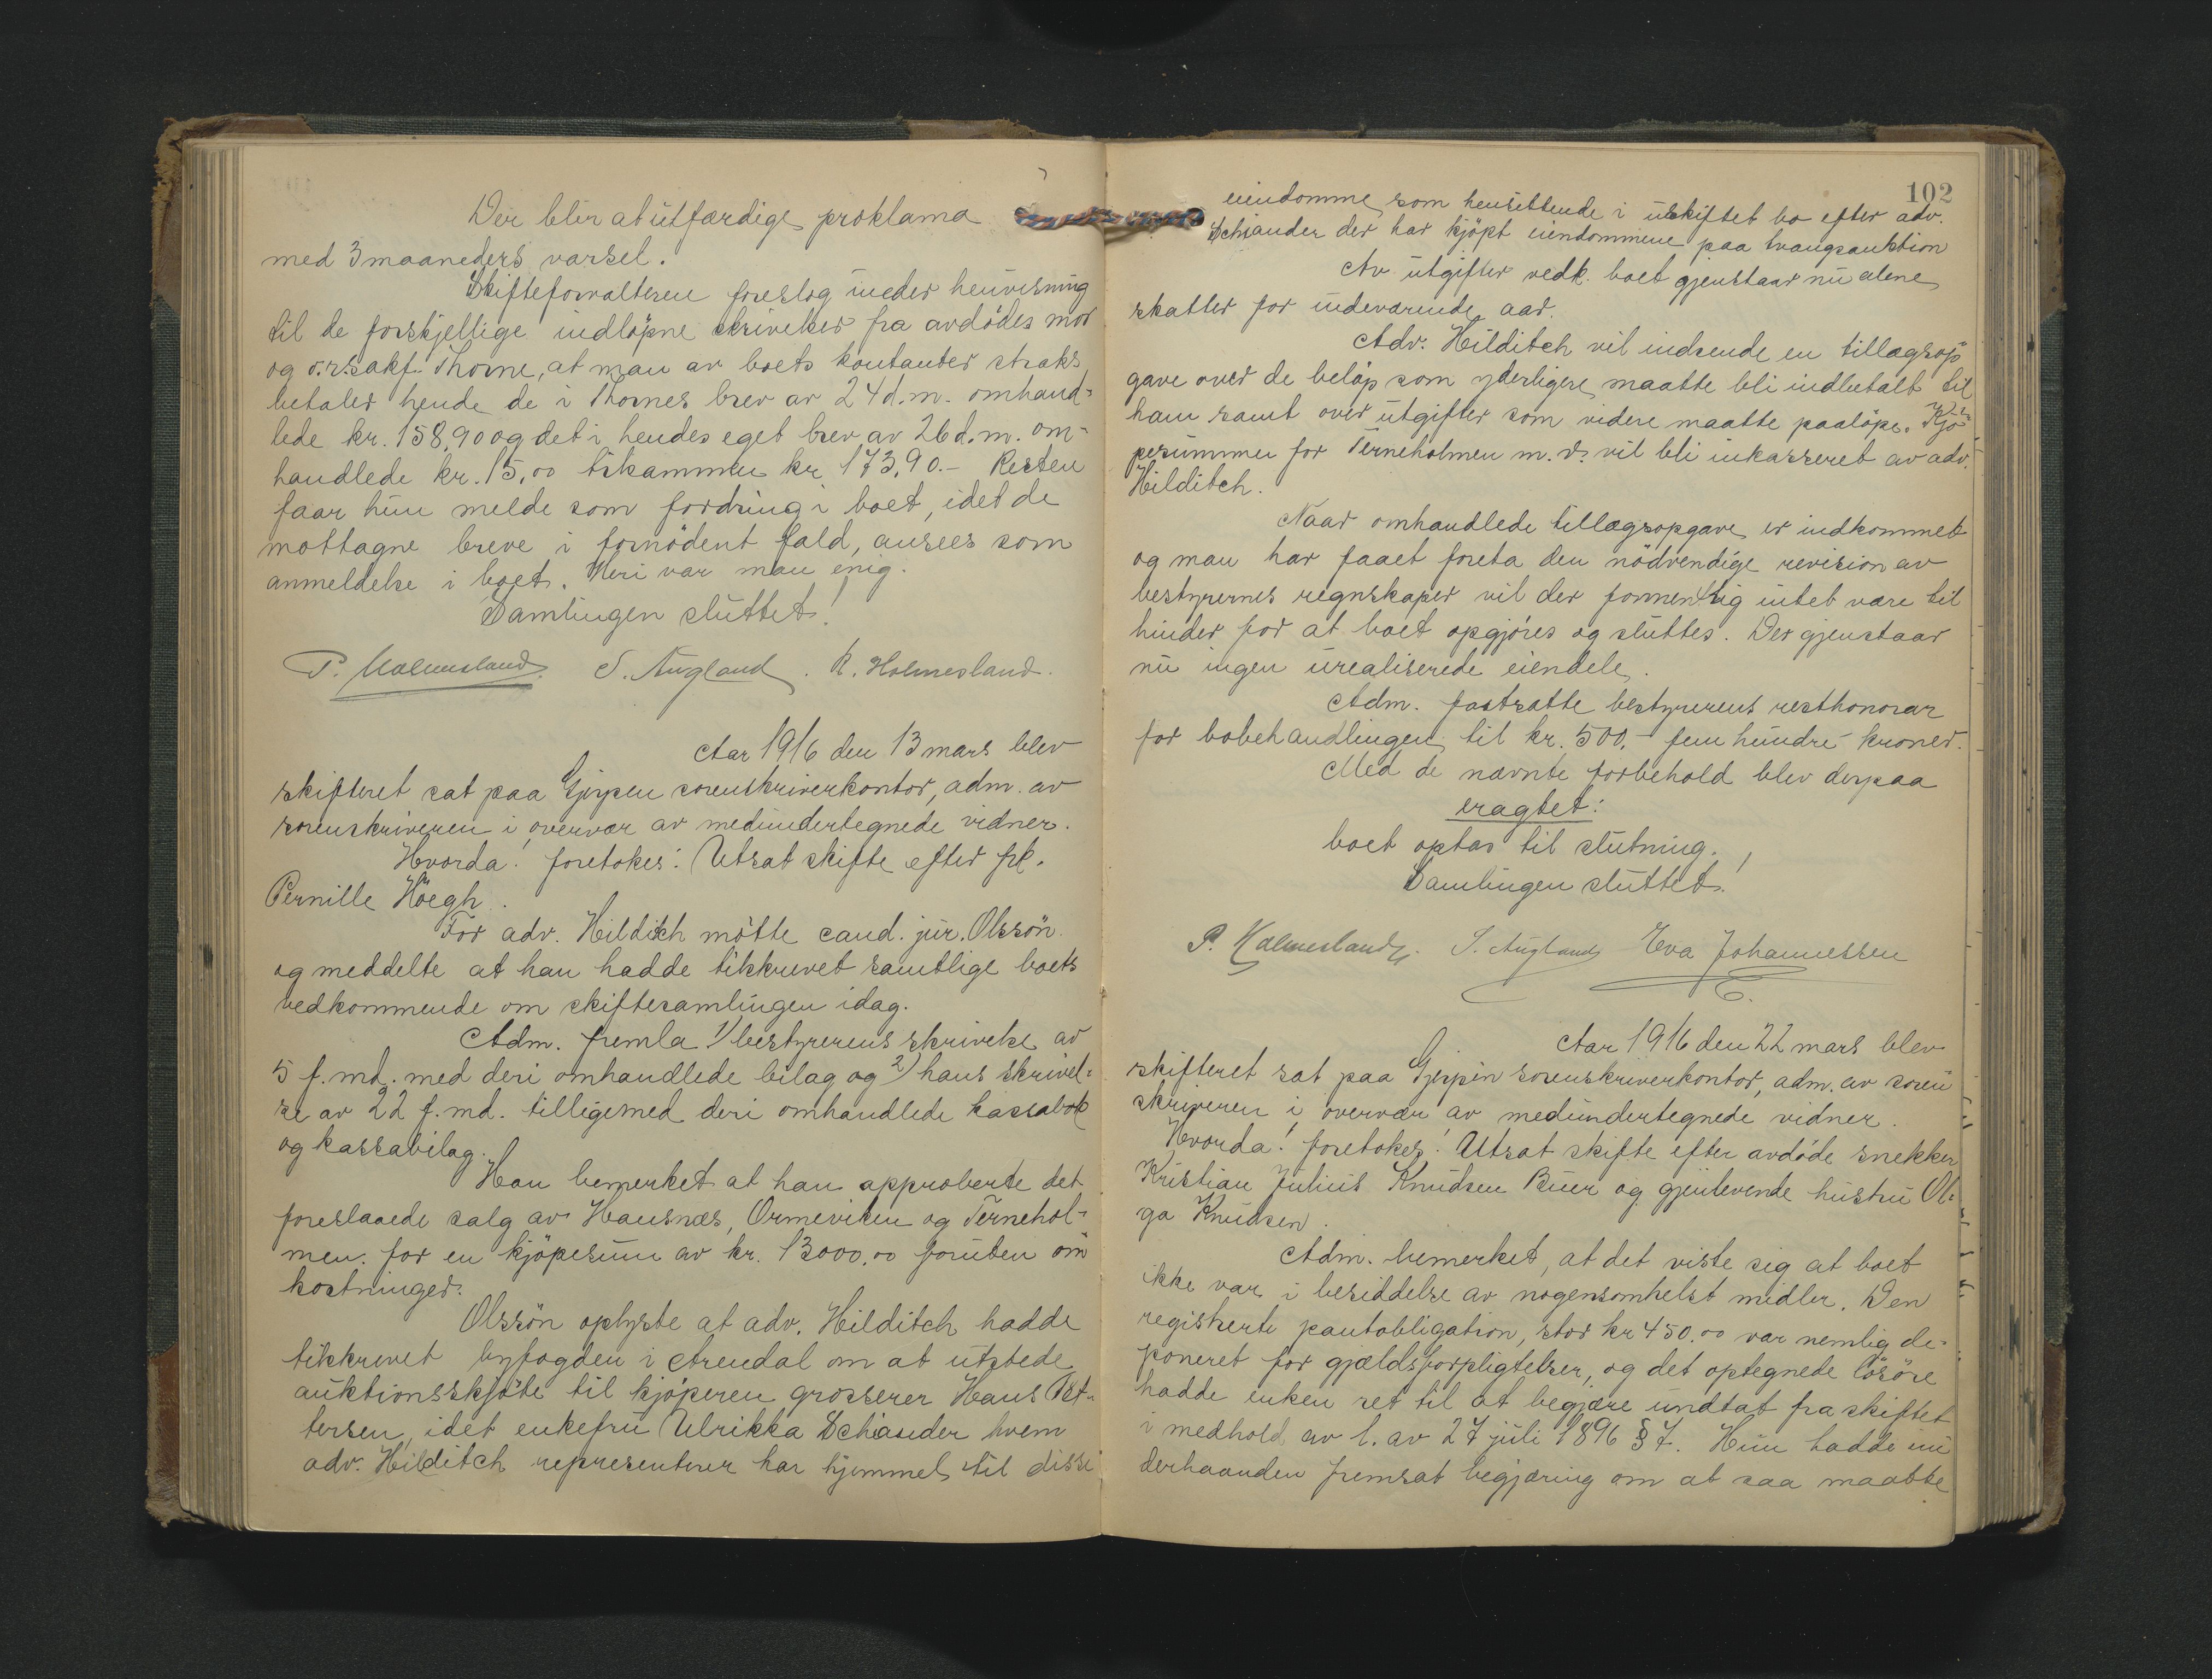 Der blir at utfærdige proklama
med 3 maaneders varsel.
Skifteforvalteren foreslog under henvisning
til de forskjellige indløpne skrivelser fra avdødes mor
og o.r.sakf. Thorne, at man av boets kontanter straks
betaler hende de i Thornes brev av 24 d.m. omhand-
lede kr. 158,90 og det i hendes eget brev av 26 d.m. om-
handlede kr. 15,00 tilsammen kr. 173,90.- Resten
faar hun melde som fordring i boet, idet de
mottagne breve i fornødent fald, ansees som
anmeldelse i boet. Heri var man enig.
Samlingen sluttet!
P. Holmesland. S. Augland. R. Holmesland.
Aar 1916 den 13 mars blev
skifteret sat paa Gjerpen sorenskriverkontor, adm. av
sorenskriveren i overvær av medundertegnede vidner.
Hvorda! foretokes: Utsat skifte efter frk.
Pernille Höegh.
For adv. Hilditch møtte cand. jur. Olssön
og meddelte at han hadde tilskrevet samtlige boets
vedkommende om skiftesamlingen idag.
Adm. fremla 1) bestyrerens skrivelse av
5 f. md. med deri omhandlede bilag og 2) hans skrivel-
se av 22 f. md. tilligemed deri omhandlede kassabok
og kassabilag.
Han bemerket at han approberte det
foreslaaede salg av Hausnæs, Ormeviken og Ternehol-
men. for en kjøpesum av kr. 13000.00 foruten om
kostninger.
Olssön oplyste at adv. Hilditch hadde
tilskrevet byfogden i Arendal om at utstede
auktionsskjøte til kjøperen grosserer Hans Pet-
tersen, idet enkefru Ulrikka Schiander hvem
adv. Hilditch representerer har hjemmel til disse
102
eiendomme som hensittende i uskiftet bo efter adv.
Schiander der har kjøpt eiendommene paa tvangsauktion
Av utgifter vedk. boet gjenstaar nu alene
skatter for indeværende aar.
Adv. Hilditch vil indsende en tillægsop
gave over de beløp som yderligere maatte bli indbetalt til
ham samt over utgifter som videre maatte paaløpe. Kjø
pesummen for Terneholmen m.v. vil bli inkasseret av adv.
Hilditch.
Naar omhandlede tillægsopgave er indkommet
og man har faaet foreta den nødvendige revision av
bestyrernes regnskaper vil der formentlig intet være til
hinder for at boet opgjøres og sluttes. Der gjenstaar
nu ingen urealiserede eiendele.
Adm. fastsatte bestyrerens resthonorar
for bobehandlingen til kr. 500,- fem hundre kroner.
Med de nævnte forbehold blev derpaa
eragtet:
boet optas til slutning.
Samlingen sluttet!
P. Holmesland. S. Augland Eva Johannessen
Aar 1916 den 22 mars blev
skifteret sat paa Gjerpen sorenskriverkontor, adm. av soren
skriveren i overvær av medundertegnede vidner.
Hvorda! foretokes! Utsat skifte efter avdøde snekker
Kristian Julius Knudsen Buer og gjenlevende hustru Ol-
ga Knudsen.
Adm. bemerket, at det viste sig at boet
ikke var i besiddelse av nogensomhelst midler. Den
registrerte pantobligation, stor kr 450.00 var nemlig de-
poneret for gjældsforpligtelser, og det optegnede løsøre
hadde enken ret til at begjære undtat fra skiftet
i medhold av l. av 27 juli 1896 § 7. Hun hadde nu
derhaanden fremsat begjæring om at saa maatte